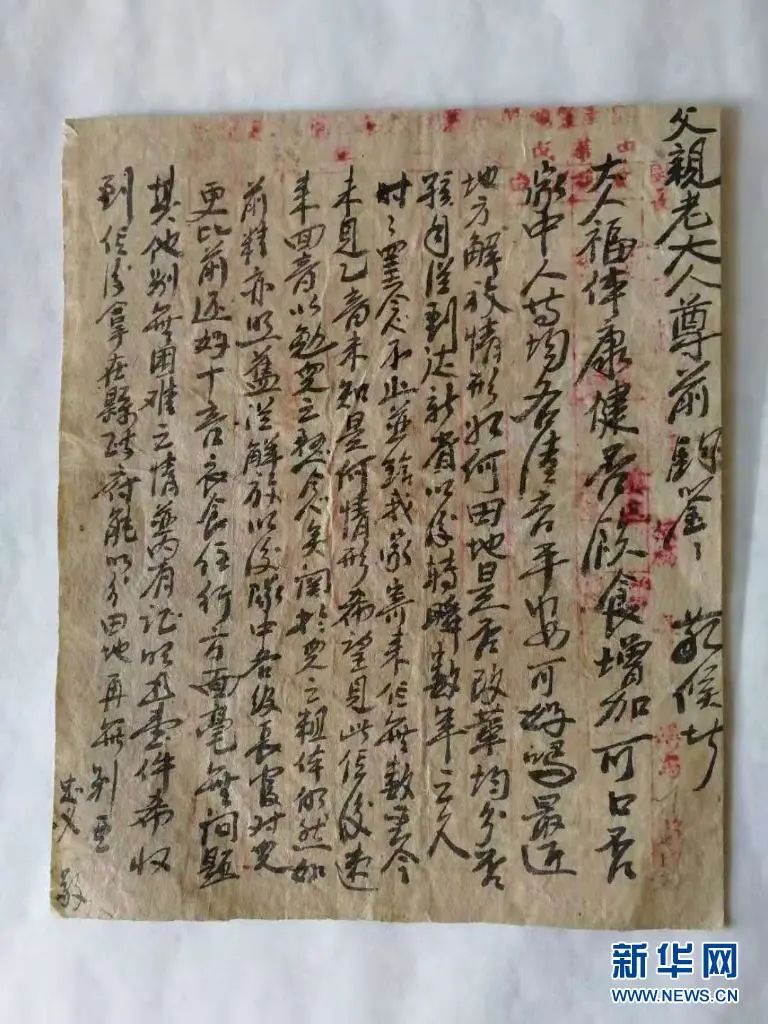 父親老大人尊前 敬候
大人福体康健否飲食增加可口否
家中人等均各清吉平安可好嗎最近
地方解放情形如何田地是否改革均分否
孩自從到达新省以後轉瞬数年之久
時〻罣念不止並給我家寄来信無数至今
未見乙音未知是何情形希望見此信後速
来回音以勉兒之想念矣関於兒之粗体仍然如
前精亦照舊從解放以後隊中各級長官对兒
更比前还好十二衣食住行方面毫無问题
其他别無困难之情兹內有证明书壹件希收
到信後拿在縣政府能以分田地再無别 
敬
新华网
WWW.NEWS.CN